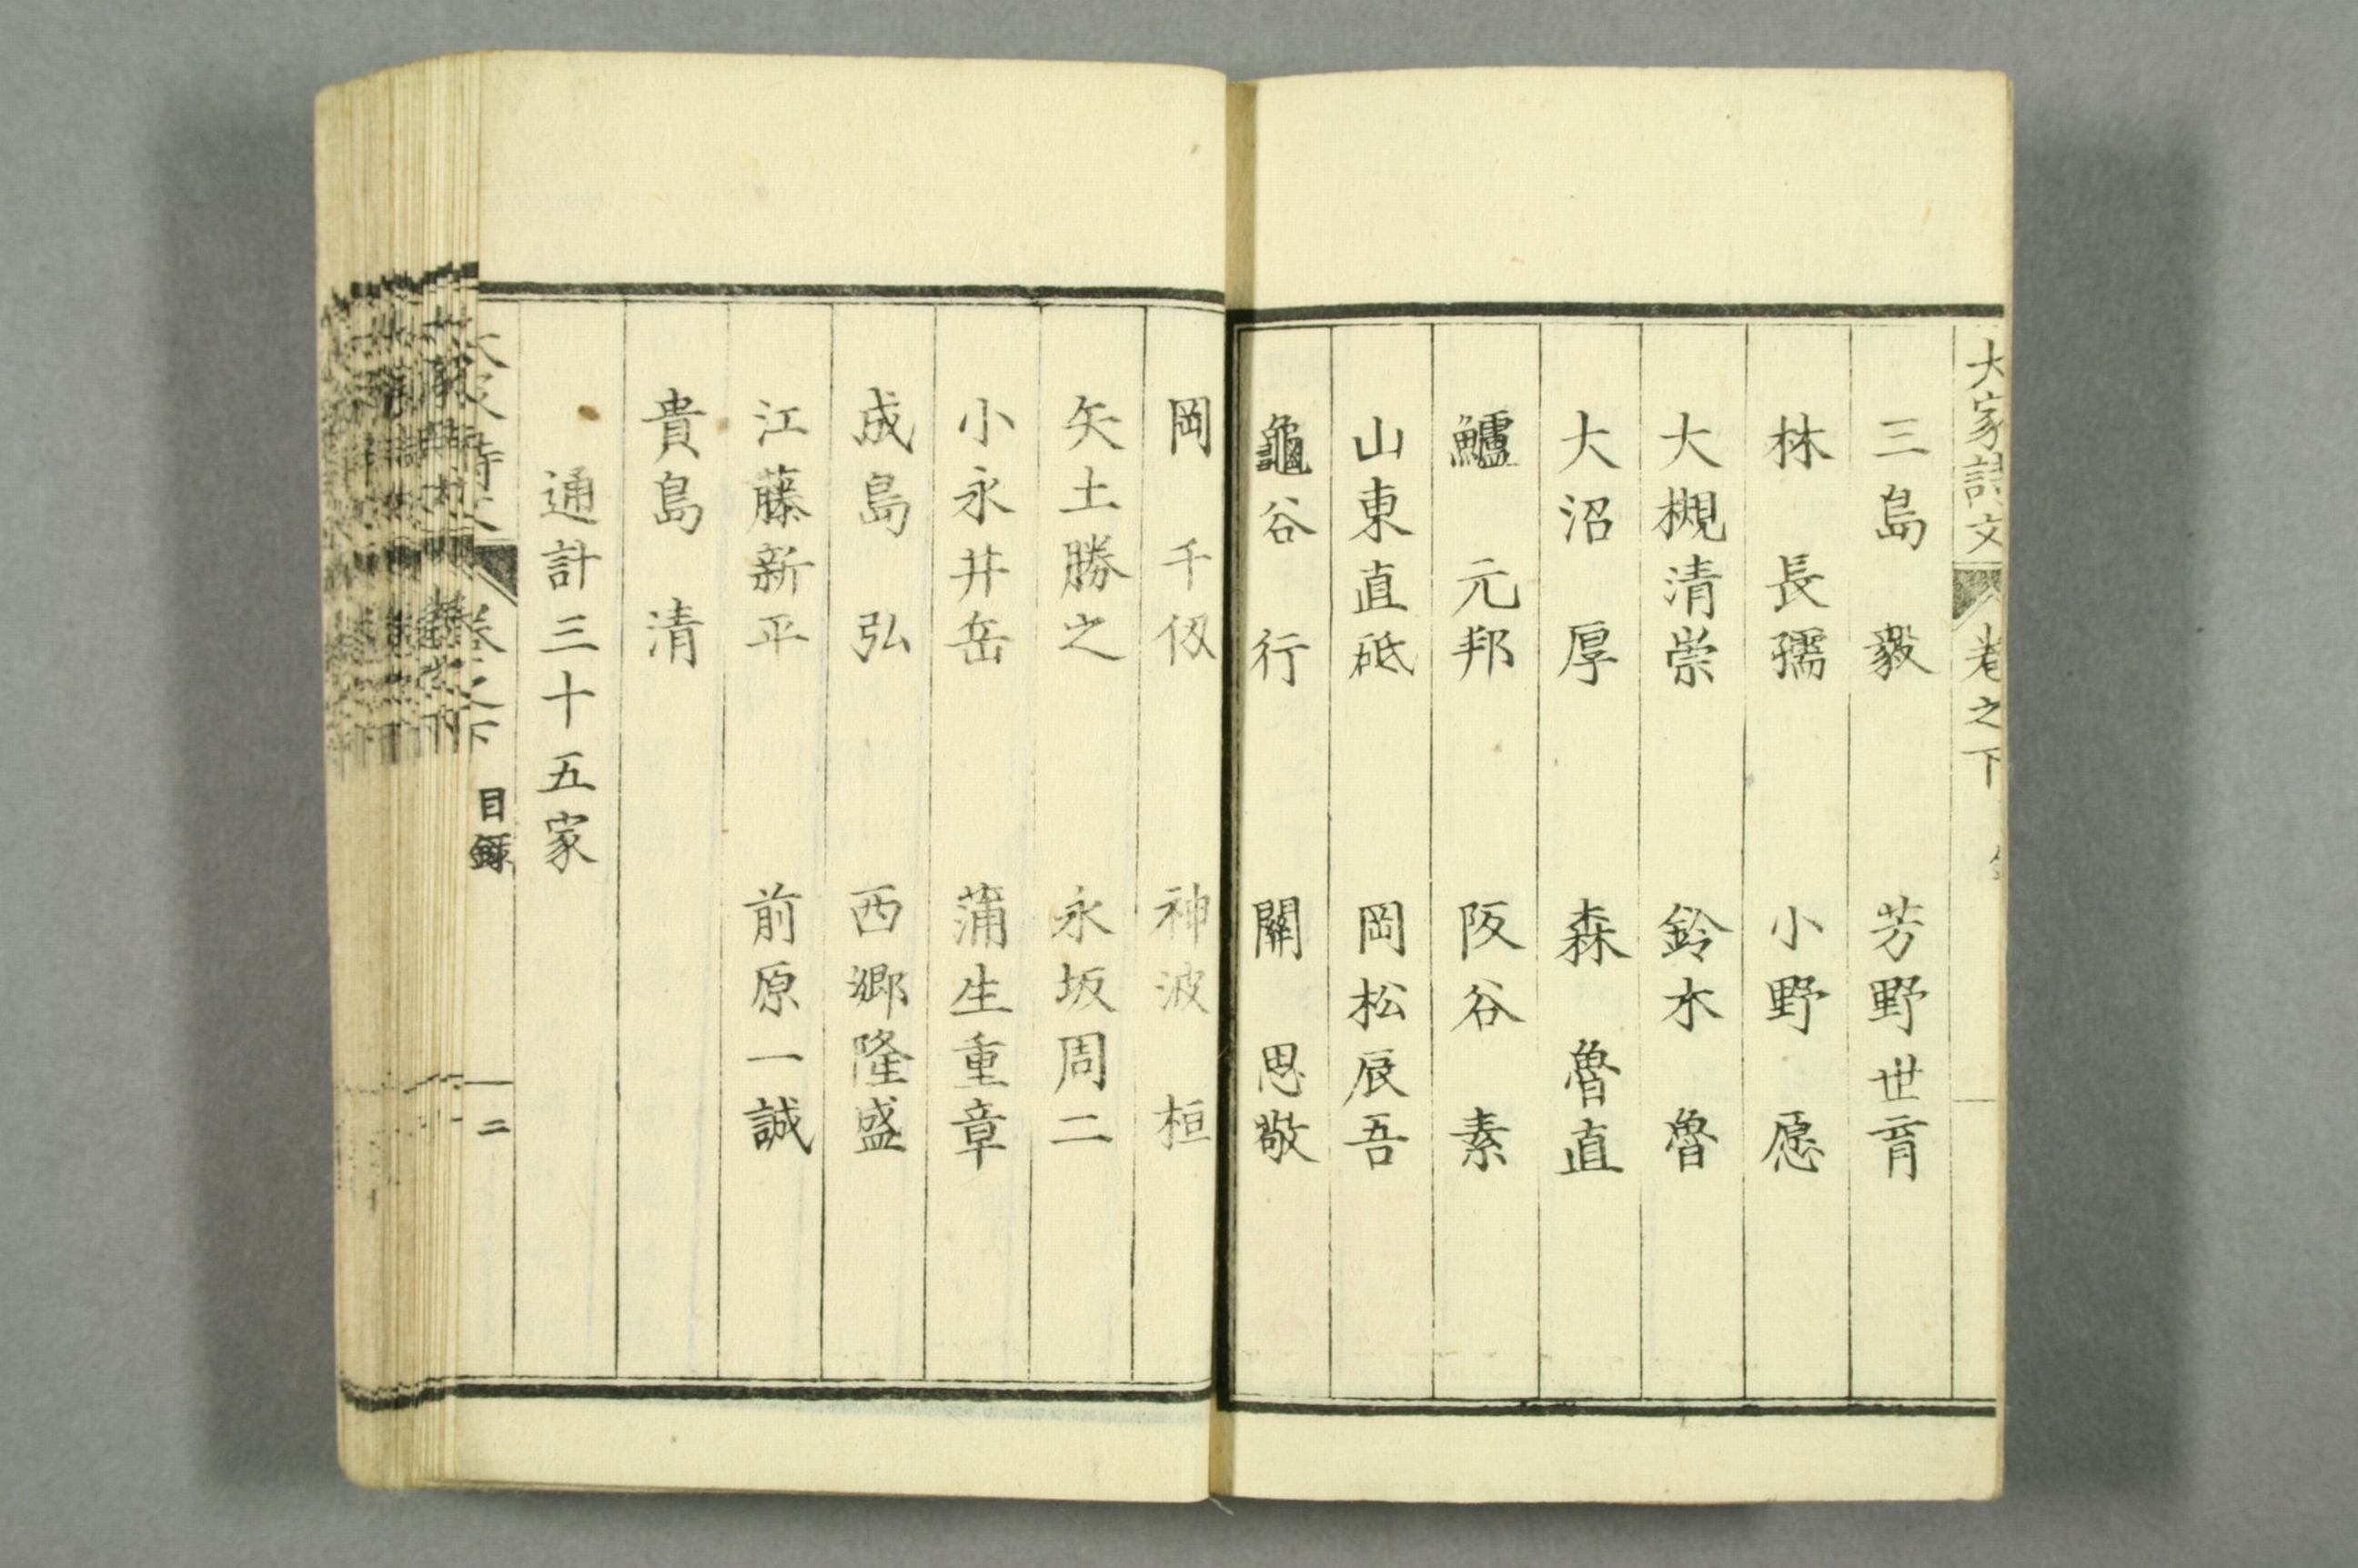 大家詩文 卷之下
三島 毅 芳野世育
林 長孺 小野 愿
大槻清崇 鈴木 魯
大沼 厚 森 魯直
鱸 元邦 阪谷 素
山東直砥 岡松辰吾
龜谷 行 關 思敬
岡 千仭 神波 桓
矢土勝之 永坂周二
小永井岳 蒲生重章
成島 弘 西郷隆盛
江藤新平 前原一誠
貴島 清
通計三十五家
卷之下 目錄 二